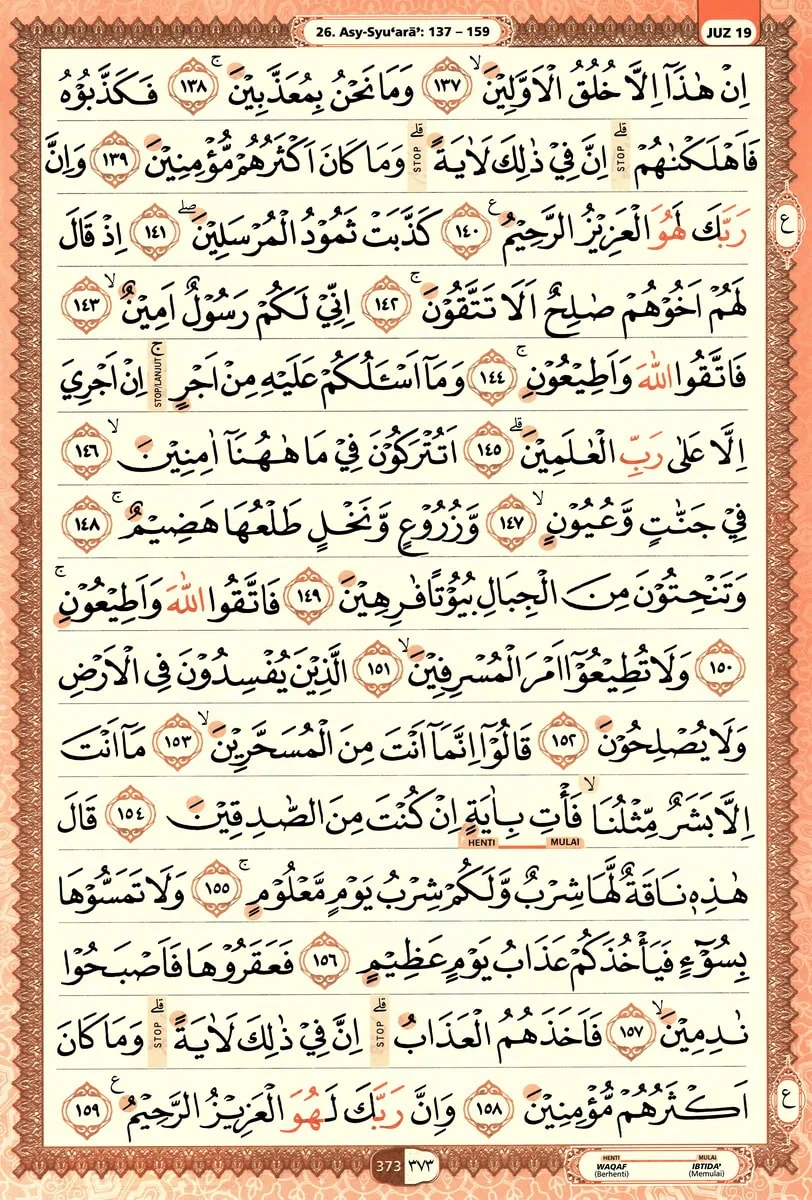 26. Asy-Syu‘arā’: 137 – 159
JUZ 19
اِنْ هٰذَآ اِلَّا خُلُقُ الْاَوَّلِيْنَۙ ١٣٧ وَمَا نَحْنُ بِمُعَذَّبِيْنَۚ ١٣٨ فَكَذَّبُوْهُ
فَاَهْلَكْنٰهُمْۗ STOP اِنَّ فِيْ ذٰلِكَ لَاٰيَةًۗ STOP وَمَا كَانَ اَكْثَرُهُمْ مُّؤْمِنِيْنَ ١٣٩ وَاِنَّ
رَبَّكَ لَهُوَ الْعَزِيْزُ الرَّحِيْمُ ࣖ ١٤٠ كَذَّبَتْ ثَمُوْدُ الْمُرْسَلِيْنَۖ ١٤١ اِذْ قَالَ
ع
لَهُمْ اَخُوْهُمْ صٰلِحٌ اَلَا تَتَّقُوْنَۚ ١٤٢ اِنِّيْ لَكُمْ رَسُوْلٌ اَمِيْنٌۙ ١٤٣
فَاتَّقُوا اللّٰهَ وَاَطِيْعُوْنِۚ ١٤٤ وَمَآ اَسْـَٔلُكُمْ عَلَيْهِ مِنْ اَجْرٍۚ STOP/LANJUT اِنْ اَجْرِيَ
اِلَّا عَلٰى رَبِّ الْعٰلَمِيْنَۗ ١٤٥ اَتُتْرَكُوْنَ فِيْ مَا هٰهُنَآ اٰمِنِيْنَۙ ١٤٦
فِيْ جَنّٰتٍ وَّعُيُوْنٍۙ ١٤٧ وَّزُرُوْعٍ وَّنَخْلٍ طَلْعُهَا هَضِيْمٌۚ ١٤٨
وَتَنْحِتُوْنَ مِنَ الْجِبَالِ بُيُوْتًا فٰرِهِيْنَ ١٤٩ فَاتَّقُوا اللّٰهَ وَاَطِيْعُوْنِۚ
١٥٠ وَلَا تُطِيْعُوْٓا اَمْرَ الْمُسْرِفِيْنَۙ ١٥١ الَّذِيْنَ يُفْسِدُوْنَ فِى الْاَرْضِ
وَلَا يُصْلِحُوْنَ ١٥٢ قَالُوْٓا اِنَّمَآ اَنْتَ مِنَ الْمُسَحَّرِيْنَۙ ١٥٣ مَآ اَنْتَ
اِلَّا بَشَرٌ مِّثْلُنَاۙ فَأْتِ بِاٰيَةٍ اِنْ كُنْتَ مِنَ الصّٰدِقِيْنَ ١٥٤ قَالَ
HENTI MULAI
هٰذِهٖ نَاقَةٌ لَّهَا شِرْبٌ وَّلَكُمْ شِرْبُ يَوْمٍ مَّعْلُوْمٍۚ ١٥٥ وَلَا تَمَسُّوْهَا
بِسُوْۤءٍ فَيَأْخُذَكُمْ عَذَابُ يَوْمٍ عَظِيْمٍ ١٥٦ فَعَقَرُوْهَا فَاَصْبَحُوْا
نٰدِمِيْنَۙ ١٥٧ فَاَخَذَهُمُ الْعَذَابُۗ STOP اِنَّ فِيْ ذٰلِكَ لَاٰيَةًۗ STOP وَمَا كَانَ
اَكْثَرُهُمْ مُّؤْمِنِيْنَ ١٥٨ وَاِنَّ رَبَّكَ لَهُوَ الْعَزِيْزُ الرَّحِيْمُ ࣖ ١٥٩
ع
373 ٣٧٣
HENTI MULAI
WAQAF IBTIDA’
(Berhenti) (Memulai)